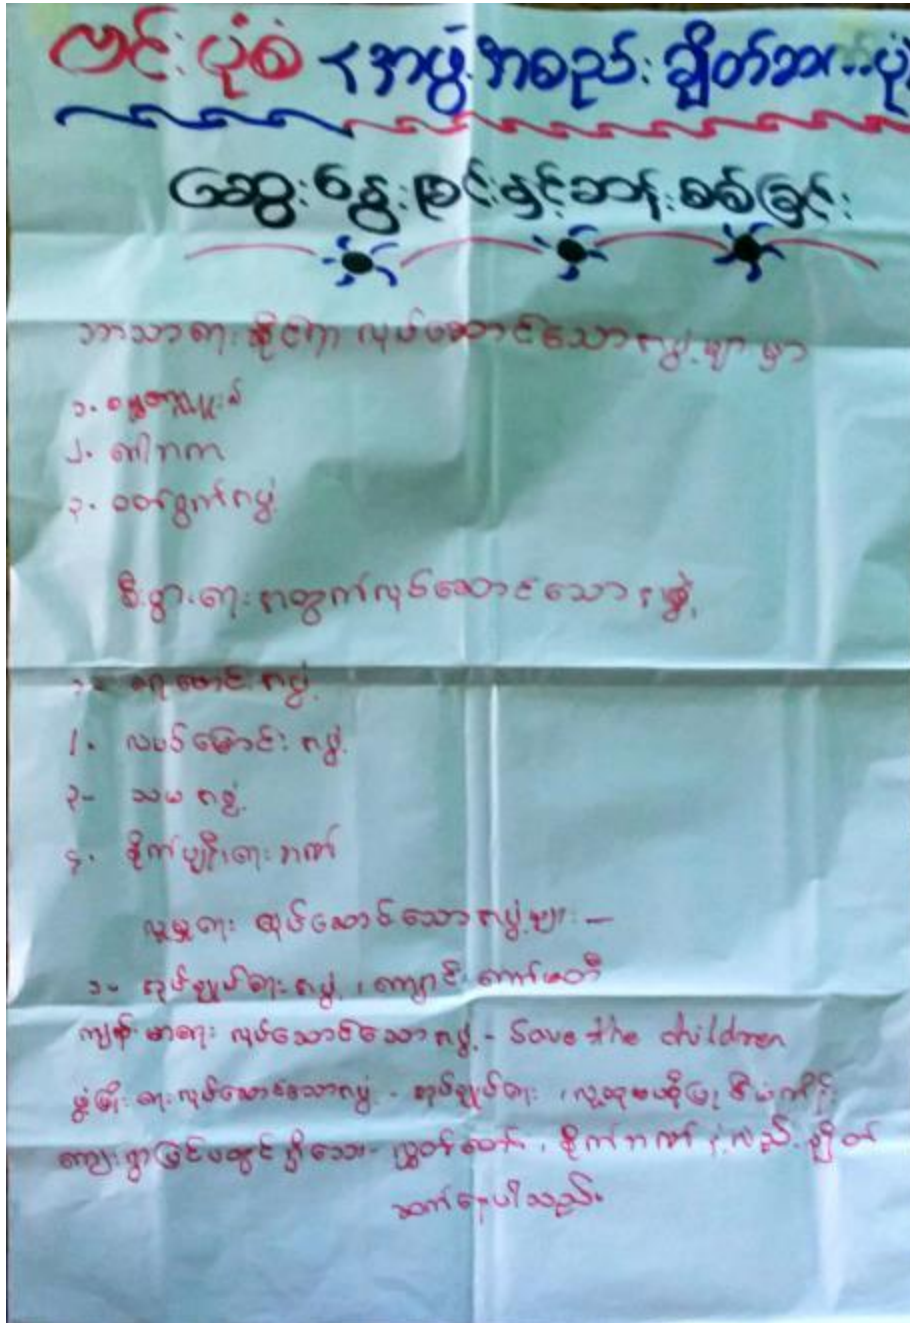 ဗင်းပုံစံ (အဖွဲ့အစည်းချိတ်ဆက်ပုံ
ဆွေးနွေးခြင်းနှင့်ဆန်းစစ်ခြင်း
ဘာသာရေးဆိုင်ရာ လုပ်ဆောင်သောအဖွဲ့များမှာ
၁.
၂. ဂေါပက
၃. ဝတ်ရွတ်အဖွဲ့
စီးပွားရေးအတွက်လုပ်ဆောင်သောအဖွဲ့
၁- ရေမောင်းအဖွဲ့
၂. လမင်းမြောင်းအဖွဲ့
၃- သမအဖွဲ့
၄. စိုက်ပျိုးရေးဘဏ်
လူမှုရေး လုပ်ဆောင်သောအဖွဲ့များ -
၁- အုပ်ချုပ်ရေးအဖွဲ့ ၊ ကျောင်းကော်မတီ
ကျန်းမာရေး လုပ်ဆောင်သောအဖွဲ့ - Save the children
ဖွံ့ဖြိုးရေးလုပ်ဆောင်သောအဖွဲ့ - အုပ်ချုပ်ရေး ၊ လူထုဗဟိုပြုစီမံကိန်း
ကျေးရွာပြင်ပတွင်ရှိသော - လွှတ်တော် ၊ စိုက်ဘဏ်နဲ့လည်းချိတ်
ဆက်နေပါသည်။